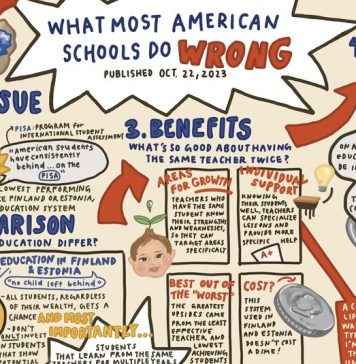 WHAT MOST AMERICAN
SCHOOLS DO WRONG
PUBLISHED OCT. 22, 2023
SUE
PISA: PROGRAM for
INTERNATIONAL STUDENT
ASSESSMENT
"American students
have consistently
behind... on the
PISA"
LOWEST PERFORMING
KE FINLAND OR ESTONIA,
EDUCATION SYSTEM
ARISON
DUCATION DIFFER?
EDUCATION IN FINLAND
& ESTONIA
"no child left behind"
ALL STUDENTS, REGARDLESS
OF THEIR WEALTH, GETS A
CHANCE AND MOST
IMPORTANTLY...
DON'T
ONLY INVEST
IN STUDENTS
THAT SHOW
POTENTIAL
STUDENTS
THAT LEARN FROM THE SAME
TEACHERS FOR MULTIPLE YEARS
3. BENEFITS
WHAT'S SO GOOD ABOUT HAVING
THE SAME TEACHER TWICE?
AREAS
FOR GROWTH
TEACHERS WHO
HAVE THE SAME
STUDENT KNOW
THEIR STRENGTHS
AND WEAKNESSES,
SO THEY CAN
TARGET AREAS
SPECIFICALLY
INDIVIDUAL
SUPPORT
KNOWING
THEIR STUDENTS
WELL, TEACHERS
CAN SPECIALIZE
LESSONS AND
PROVIDE MORE
SPECIFIC HELP
A+
BEST OUT OF
THE "WORST"
THE GREATEST
UPSIDES CAME
FROM THE LEAST
EFFECTIVE
TEACHER, AND
LOWEST
ACHIEVING
STUDENTS
COST?
THIS
SYSTEM
USED IN
FINLAND
AND ESTONIA
DOESN'T COST
A DIME!